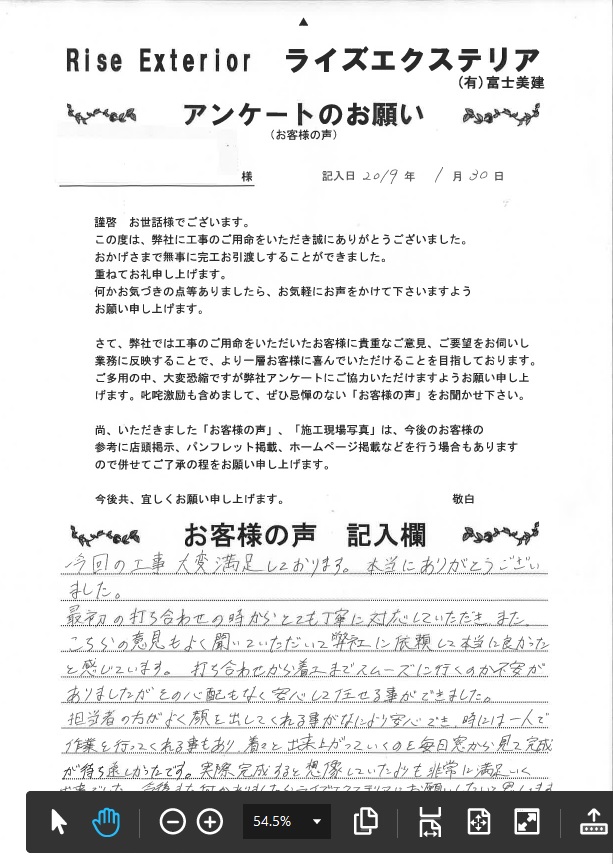 Rise Exterior ライズエクステリア
(有)富士美建
アンケートのお願い
(お客様の声)
様 記入日 2019 年 1 月 30 日
謹啓 お世話様でございます。
この度は、弊社に工事のご用命をいただき誠にありがとうございました。
おかげさまで無事に完工お引渡しすることができました。
重ねてお礼申し上げます。
何かお気づきの点等ありましたら、お気軽にお声をかけて下さいますよう
お願い申し上げます。
さて、弊社では工事のご用命をいただいたお客様に貴重なご意見、ご要望をお伺いし
業務に反映することで、より一層お客様に喜んでいただけることを目指しております。
ご多用の中、大変恐縮ですが弊社アンケートにご協力いただけますようお願い申し上
げます。叱咤激励も含めまして、ぜひ忌憚のない「お客様の声」をお聞かせ下さい。
尚、いただきました「お客様の声」、「施工現場写真」は、今後のお客様の
参考に店頭掲示、パンフレット掲載、ホームページ掲載などを行う場合もあります
ので併せてご了承の程をお願い申し上げます。
今後共、宜しくお願い申し上げます。 敬白
お客様の声 記入欄
今回の工事 大変満足しております。本当にありがとうござい
ました。
最初の打ち合わせの時からとても丁寧に対応していただき、また、
こちらの意見もよく聞いていただいて弊社に依頼して本当に良かった
と感じています。 打ち合わせから着工までスムーズに行くのか不安が
ありましたがその心配もなく安心して任せる事ができました。
担当者の方がよく顔を出してくれる事がなにより安心でき、時には一人で
作業を行ってくれる事もあり、着々と出来上がっていくのを毎日窓から見て完成
が待ち遠しかったです。実際完成すると想像していたよりも非常に満足いく
54.5%